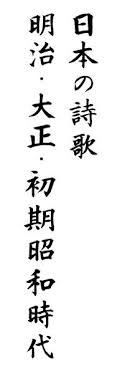 日本の詩歌
明治・大正・初期昭和時代